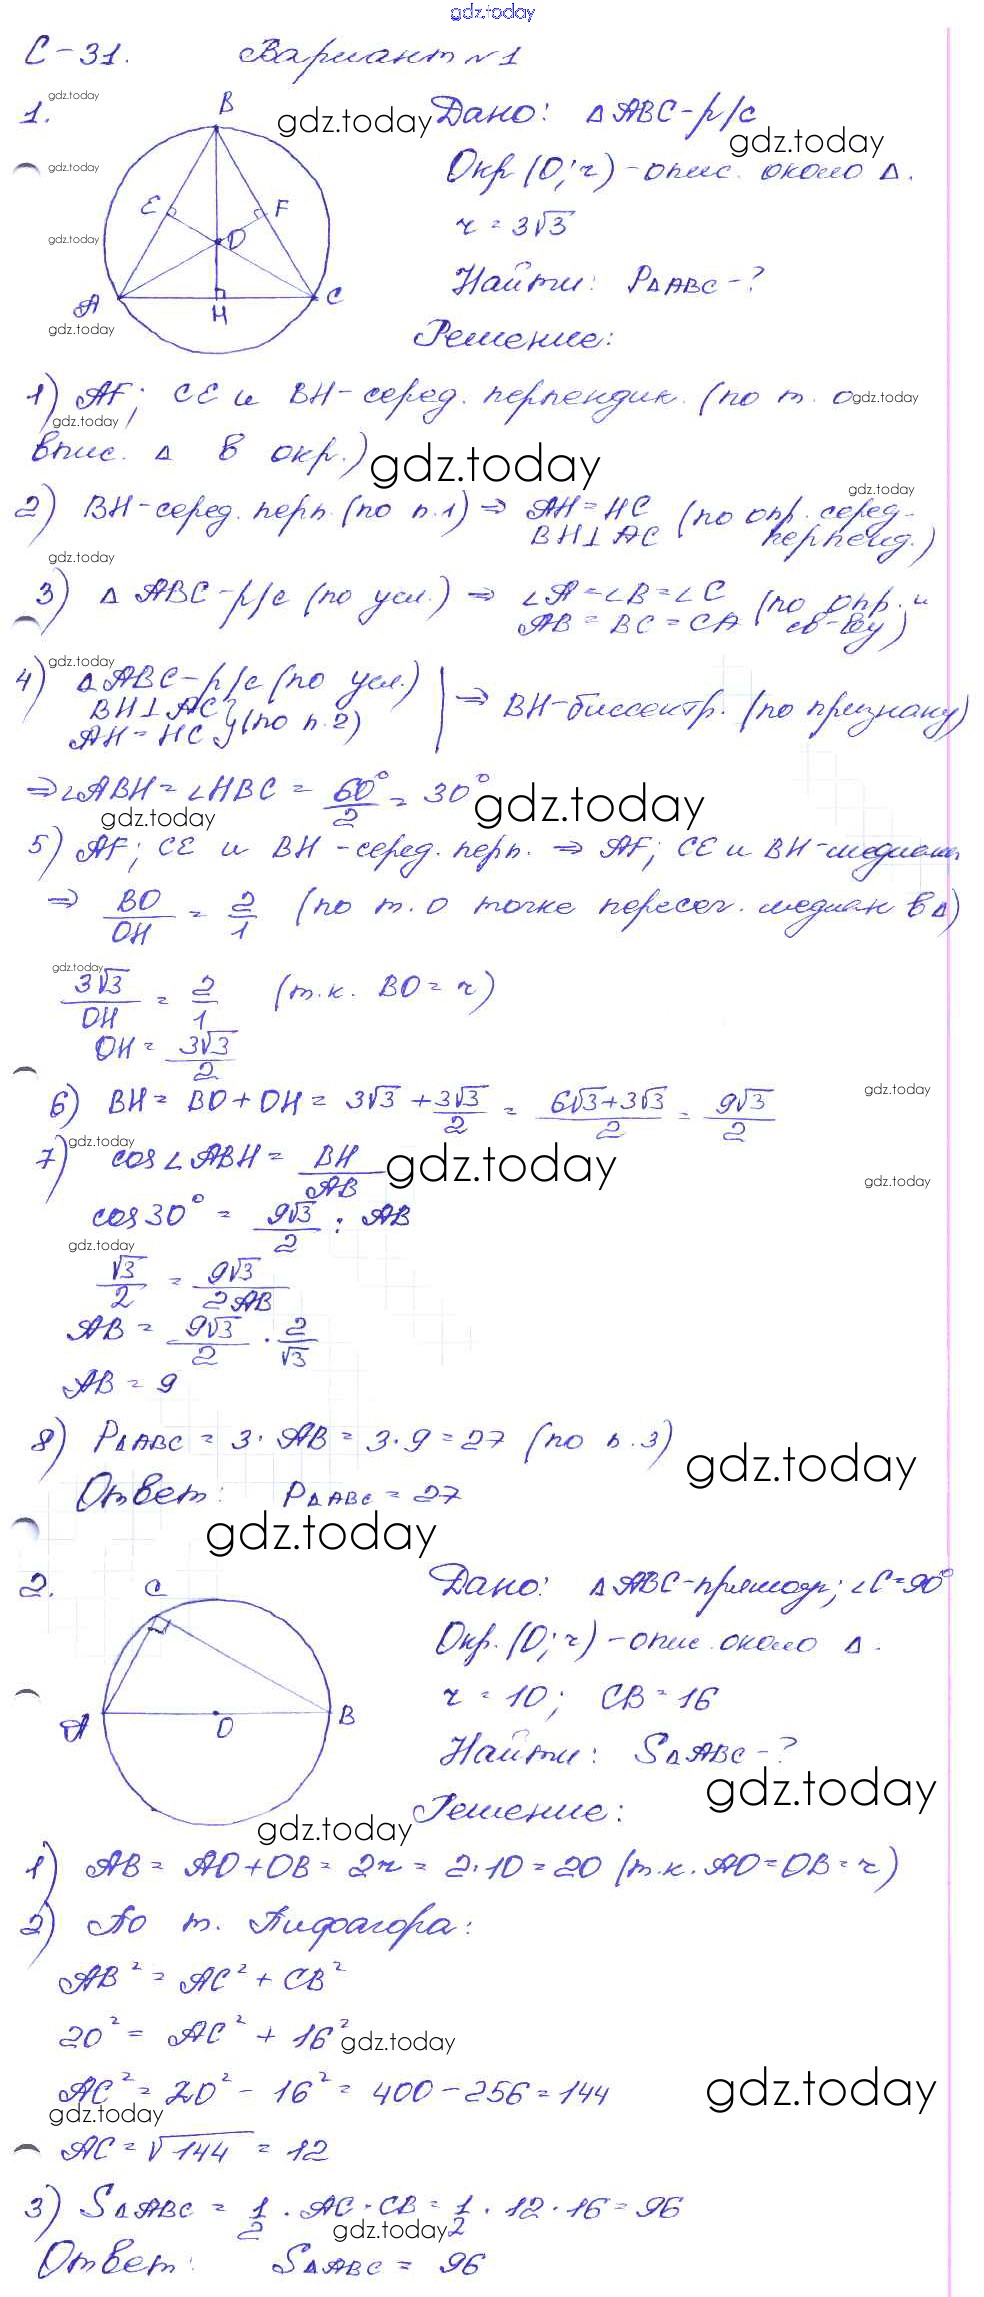 gdz.today
С-31. Вариант №1
1.
B
E
F
O
A
H
C
Дано: △ABC-р/с
Окр(O; r)-опис. около △.
r = 3√3
Найти: P△ABC-?
Решение:
1) AF; CE и BH-серед. перпендик. (по т. о
впис. △ в окр.)
2) BH-серед. перп. (по п.1) ⇒ AH=HC BH⊥AC (по опр. серед. перпенд.)
3) △ABC-р/с (по усл.) ⇒ ∠A=∠B=∠C AB=BC=CA (по опр. и св-ву)
4) △ABC-р/с (по усл.)
BH⊥AC
AH=HC } (по п.2) | ⇒ BH-биссектр. (по признаку)
⇒ ∠ABH=∠HBC = 60°/2 = 30°
5) AF; CE и BH-серед. перп. ⇒ AF; CE и BH-медианы
⇒ BO/OH = 2/1 (по т. о точке пересеч. медиан в △)
3√3/OH = 2/1 (т.к. BO=r)
OH = 3√3/2
6) BH = BO+OH = 3√3 + 3√3/2 = 6√3+3√3/2 = 9√3/2
7) cos∠ABH = BH/AB
cos30° = 9√3/2 : AB
√3/2 = 9√3/2AB
AB = 9√3/2 · 2/√3
AB = 9
8) P△ABC = 3·AB = 3·9 = 27 (по п.3)
Ответ: P△ABC = 27
2.
C
A
O
B
Дано: △ABC-прямоуг; ∠C=90°
Окр.(O; r)-опис. около △.
r = 10; CB = 16
Найти: S△ABC-?
Решение:
1) AB = AO+OB = 2r = 2·10 = 20 (т.к. AO=OB=r)
2) По т. Пифагора:
AB² = AC² + CB²
20² = AC² + 16²
AC² = 20² - 16² = 400 - 256 = 144
AC = √144 = 12
3) S△ABC = 1/2 · AC · CB = 1/2 · 12 · 16 = 96
Ответ: S△ABC = 96